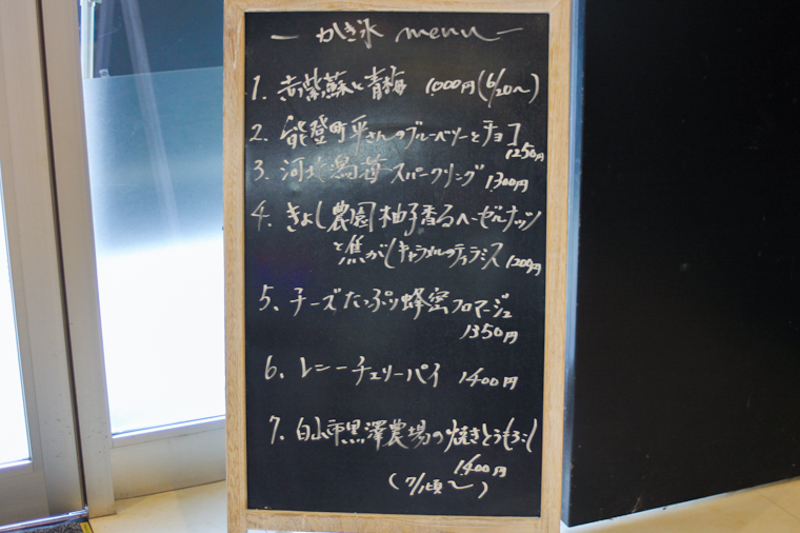 ー かき氷 menu ー
1. 赤紫蘇と青梅 1000円(6/20〜)
2. 能登町平さんのブルーベリーとチョコ
1250円
3. 河北潟苺スパークリング 1300円
4. きよし農園柚子香るヘーゼルナッツ
と焦がしキャラメルのティラミス 1200円
5. チーズたっぷり蜂蜜フロマージュ
1350円
6. レニーチェリーパイ 1400円
7. 白山市黒澤農場の焼きとうもろこし
1400円
(7/1頃〜)